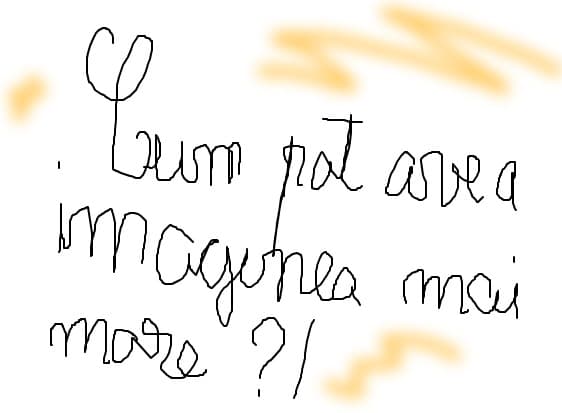 Cum pot avea
imaginea mai
mare ?!